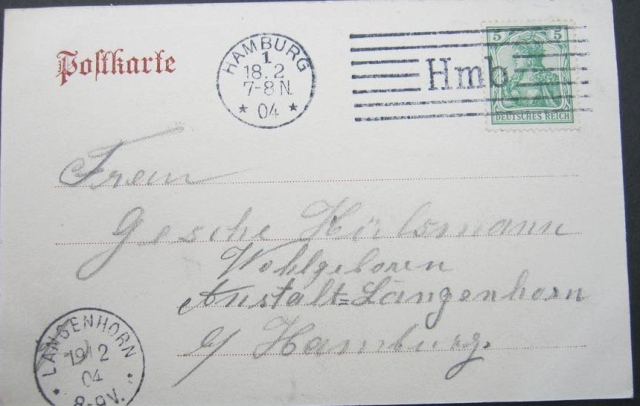 Postkarte
HAMBURG
1
18.2
7-8 N.
* 04 *
Hmb
5 5
DEUTSCHES REICH
Frau
Gesche Hülsmann
Wohlgeboren
Anstalt=Langenhorn
b/ Hamburg.
LANGENHORN
19 2
04
8-9V.